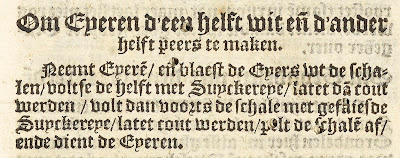 Om Eyeren d'een helft wit eñ d'ander
helft peers te maken.
Neemt Eyerē/ eñ blaest de Eyers wt de scha-
len/ voltse de helft met Suyckereye/ latet dā cout
werden / volt dan voorts de schale met
Suyckereye/ latet cout werden/ pelt de schalē af/
ende dient de Eyeren.